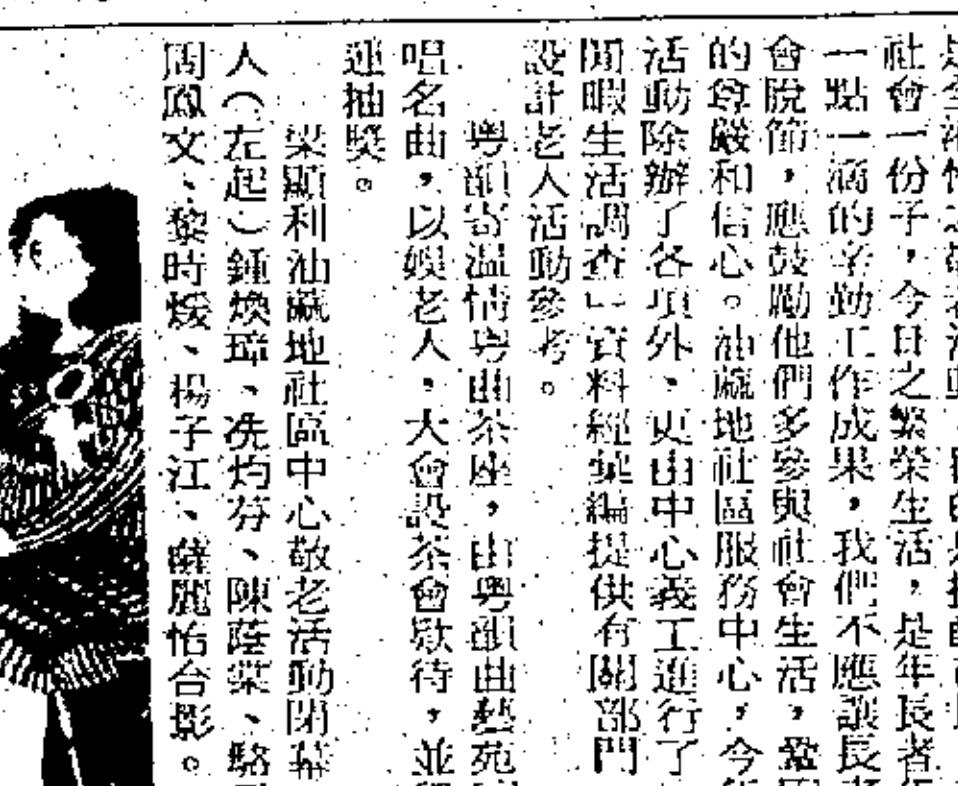 社會一份子，今日之繁榮生活，是年長者
一點一滴的辛勤工作成果，我們不應讓長
會脫節，應鼓勵他們多參與社會生活，
的尊嚴和信心。油蔴地社區服務中心，今
活動除辦了各項外，更由中心義工進行了
閒暇生活調查，資料經彙編提供有關部門
設計老人活動參考。
粵韻寄溫情粵曲茶座，由粵韻曲藝苑
唱名曲，以娛老人，大會設茶會欵待，並
運抽獎。
梁顯利油蔴地社區中心敬老活動閉幕
人（左起）鍾煥璋、冼灼芬、陳蔭棠、駱
周鳳文、黎時煖、楊子江、薩麗怡合影。